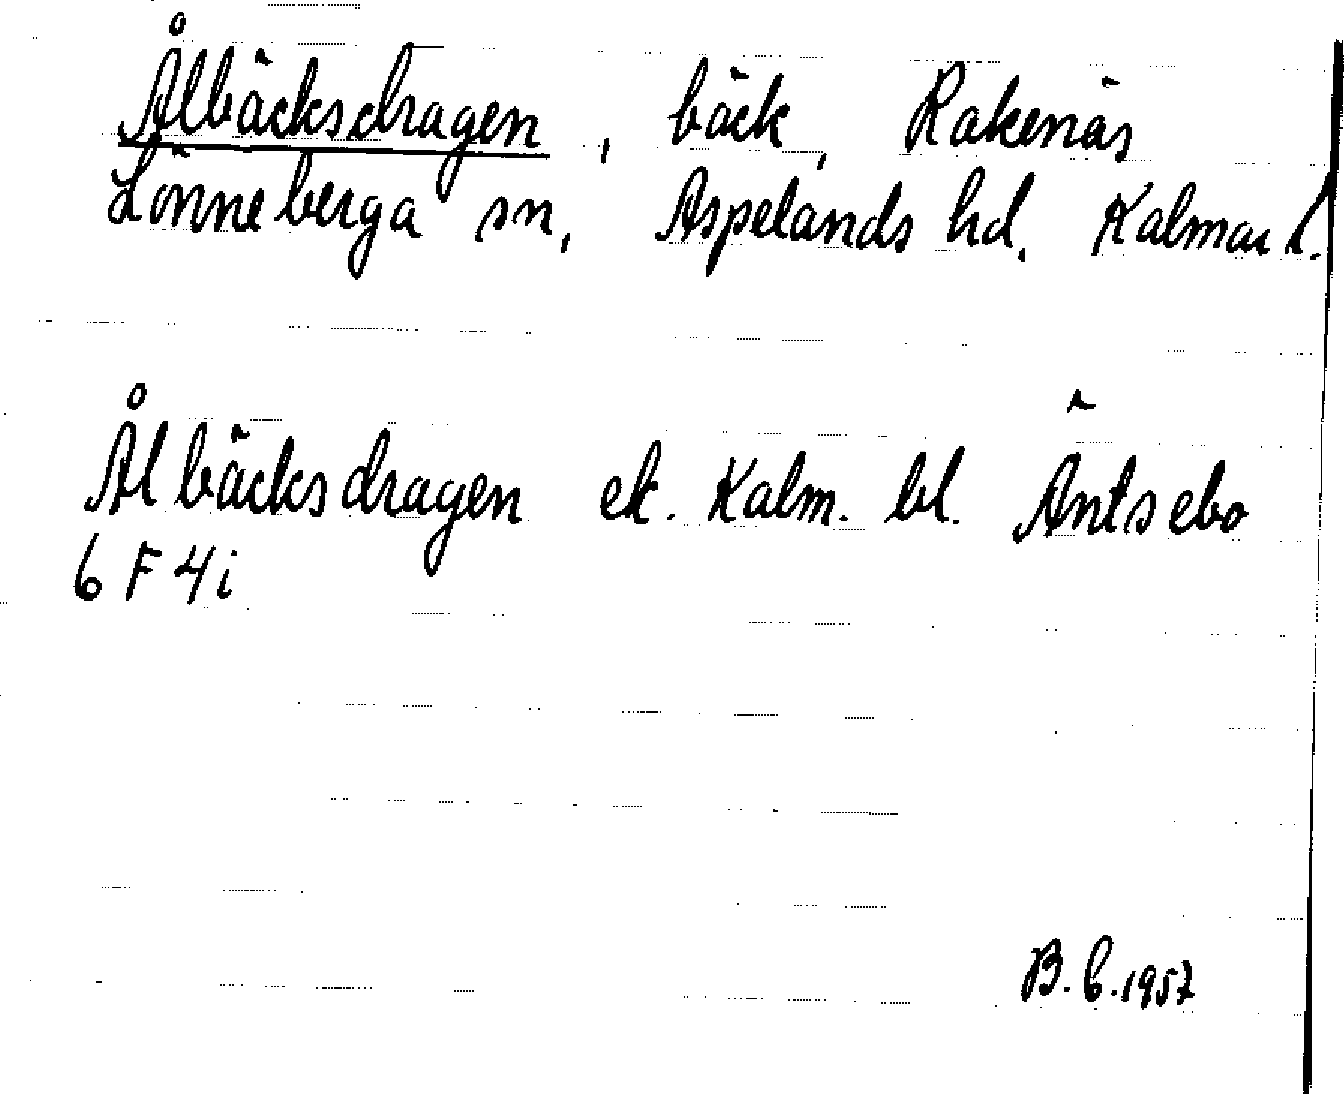 Ålbäcksdragen, bäck, Rakenäs
Lönneberga sn, Aspelands hd, Kalmar l.
Ålbäcksdragen ek. Kalm. bl. Äntsebo
6 F 4 i
B. E. 1957